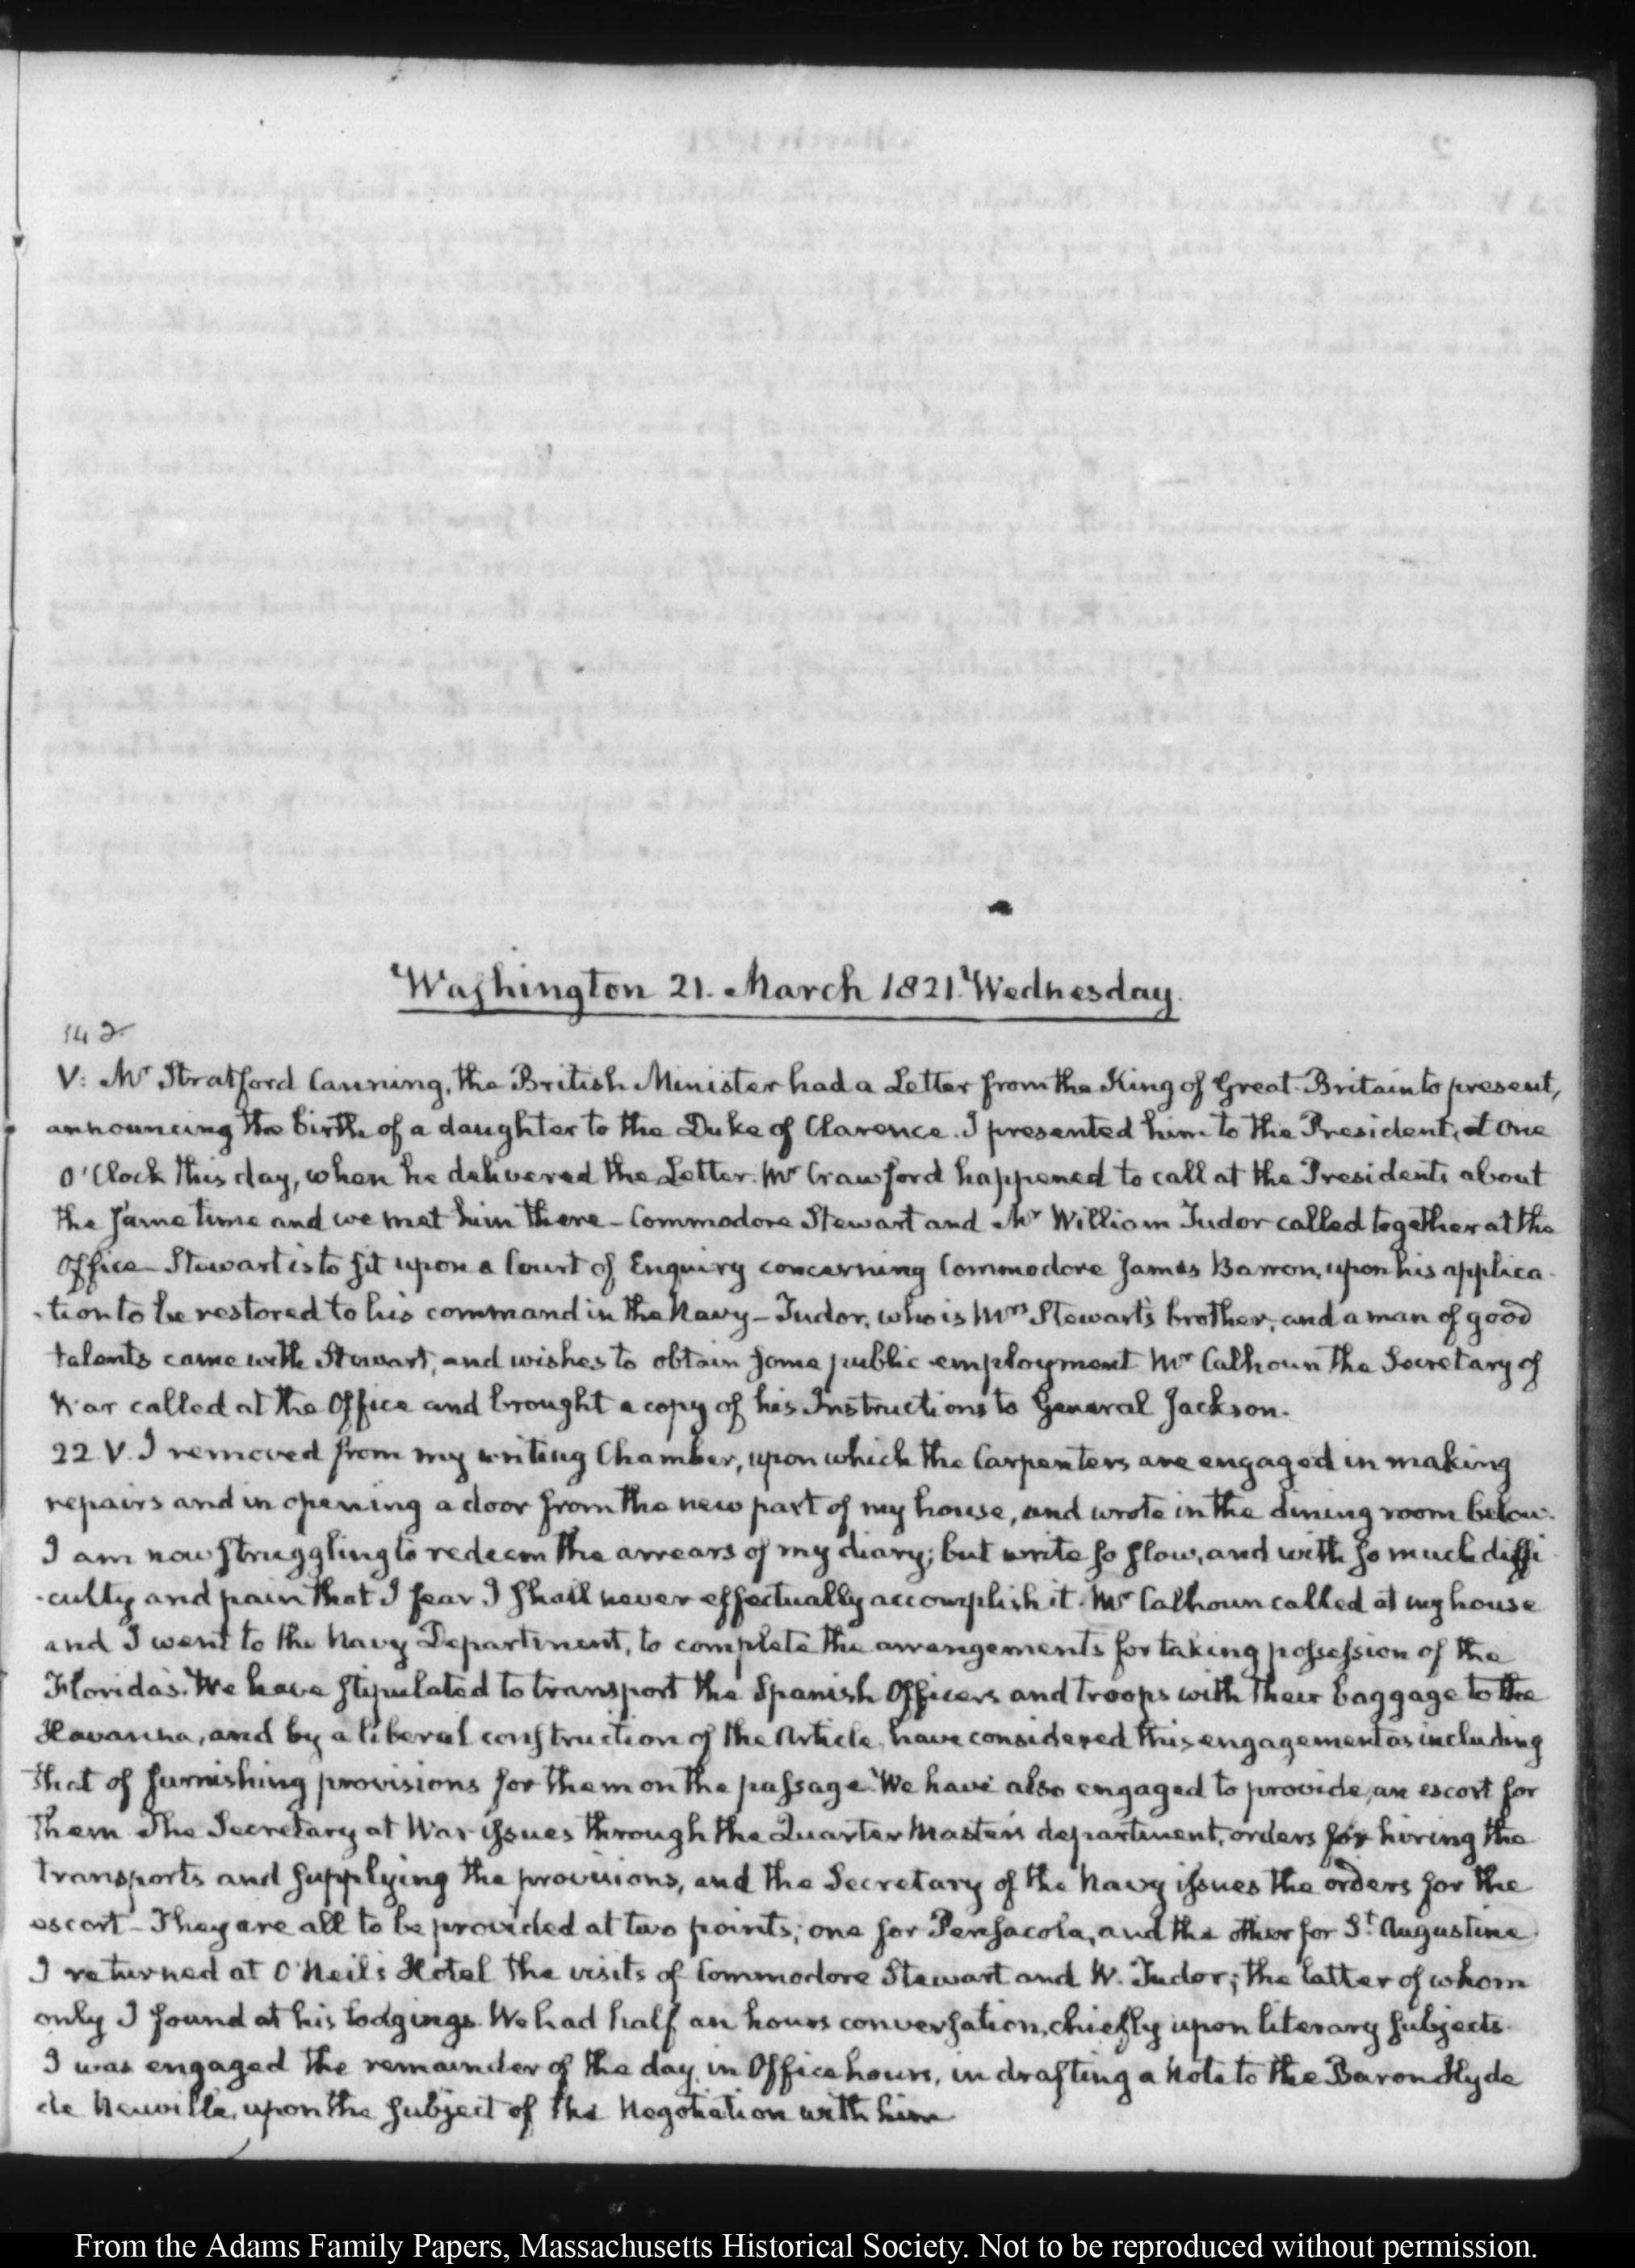 Washington 21. March 1821. Wednesday.
142
V: Mr Stratford Canning, the British Minister had a Letter from the King of Great-Britain to present,
announcing the birth of a daughter to the Duke of Clarence. I presented him to the President, at One
O'Clock this day, when he delivered the Letter. Mr Crawford happened to call at the Presidents about
the same time and we met him there – Commodore Stewart and Mr William Tudor called together at the
Office – Stewart is to sit upon a Court of Enquiry concerning Commodore James Barron, upon his applica-
-tion to be restored to his command in the Navy – Tudor, who is Mrs Stewart's brother, and a man of good
talents came with Stewart, and wishes to obtain some public employment Mr Calhoun the Secretary of
War called at the Office and brought a copy of his Instructions to General Jackson.
22. V. I removed from my writing Chamber, upon which the Carpenters are engaged in making
repairs and in opening a door from the new part of my house, and wrote in the dining room below.
I am now struggling to redeem the arrears of my diary; but write so slow, and with so much diffi-
-culty and pain that I fear I shall never effectually accomplish it. Mr Calhoun called at my house
and I went to the Navy Department, to complete the arrangements for taking possession of the
Florida's. We have stipulated to transport the Spanish Officers and troops with their baggage to the
Havanna, and by a liberal construction of the Article, have considered this engagement as including
that of furnishing provisions for them on the passage. We have also engaged to provide, an escort for
them The Secretary at War issues through the Quarter Master's department, orders for hiring the
transports and supplying the provisions, and the Secretary of the Navy issues the orders for the
escort – They are all to be provided at two points; one for Pensacola, and the other for St. Augustine.
I returned at O'Neil's Hotel the visits of Commodore Stewart and W. Tudor; the latter of whom
only I found at his lodgings. We had half an hours conversation, chiefly upon literary subjects.
I was engaged the remainder of the day, in Office hours, in drafting a Note to the Baron Hyde
de Neuville, upon the subject of the Negotiation with him
From the Adams Family Papers, Massachusetts Historical Society. Not to be reproduced without permission.